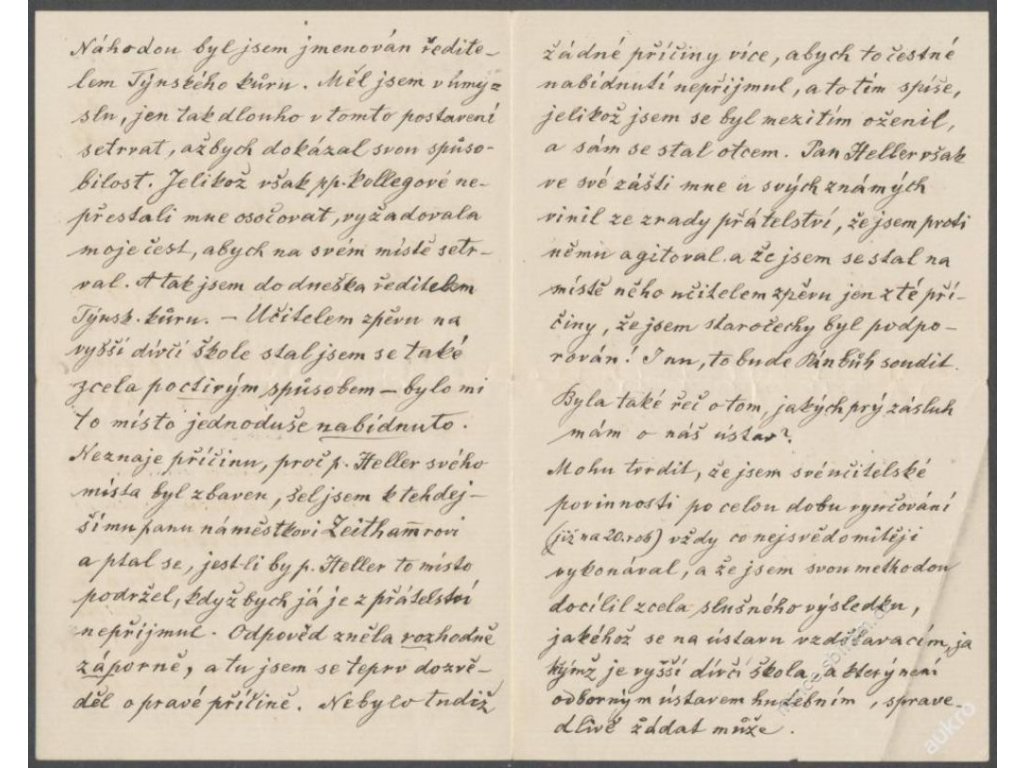 Náhodou byl jsem jmenován ředite-
lem Týnského kůru. Měl jsem v úmy=
slu, jen tak dlouho v tomto postavení
setrvat, ažbych dokázal svou spůso-
bilost. Jelikož však pp. kollegové ne-
přestali mne osočovat, vyžadovala
moje čest, abych na svém místě setr-
val. A tak jsem do dneška ředitelem
Týnsk. kůru. – Učitelem zpěvu na
vyšší dívčí škole stal jsem se také
zcela poctivým spůsobem – bylo mi
to místo jednoduše nabídnuto.
Neznaje příčinu, proč p. Heller svého
místa byl zbaven, šel jsem k tehdej-
šímu panu náměstkovi Zeitham̅rovi
a ptal se, jest-li by p. Heller to místo
podržel, když bych já je z přátelství
nepřijmul. Odpověd zněla rozhodně
záporně, a tu jsem se teprv dozvě-
děl o pravé příčině. Nebylo tudiž
žádné příčiny více, abych to čestné
nabídnutí nepřijmul, a to tím spíše,
jelikož jsem se byl mezitím oženil,
a sám se stal otcem. Pan Heller však
ve své zášti mne u svých známých
vinil ze zrady přátelství, že jsem proti
němu agitoval a že jsem se stal na
místě něho učitelem zpěvu jen z té pří-
činy, že jsem staročechy byl podpo-
rován! Inu, to bude Pánbůh soudit.
Byla také řeč o tom, jakých prý zásluh
mám o náš ústav?
Mohu tvrdit, že jsem své učitelské
povinnosti po celou dobu vyučování
(již na 20. rok) vždy co nejsvědomitěji
vykonával, a že jsem svou methodou
docílil zcela slušného výsledku,
jakéhož se na ústavu vzdělavacím, ja
kýmž je vyšší dívčí škola, a který není
odborným ústavem hudebním, sprave
dlivě žádat může.
aukro